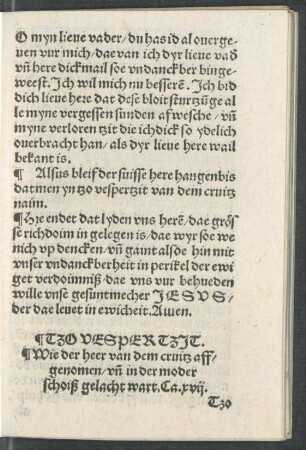 O myn lieue vader/ du has id al ouerge
uen vur mich/ dae van ich dyr lieue vad̄
vn̄ here dickmail soe vndanckber binge
weest. Ich wil mich nu besserē. Ich bid
dich lieue here dat dese bloitsturtzūge al
le myne vergessen sunden afwesche/ vn̄
myne verloren tzit die ich dick so ydelich
ouerbracht han/ als dyr lieue here wail
bekant is.
¶ Alsus bleif der suisse here hangen bis
dat men yn tzo vespertzit van dem cruitz
naim.
¶ Hie endet dat lyden vns herē/ dae grōs̄
se richdoim in gelegen is/ dae wyr soe we
nich vp dencken/ vn̄ gaint alsoe hin mit
vnser vndanckberheit in perikel der ewi
get verdoimniß/ dae vns vur behueden
wille vnse gesuntmecher IESVS/
der dae leuet in ewicheit. Amen.
¶TZO VESPERTZIT.
¶Wie der heer van dem cruitz aff-
genomen/ vn̄ in der moder
schoiß gelacht wart. Ca.xvij.
Tzo